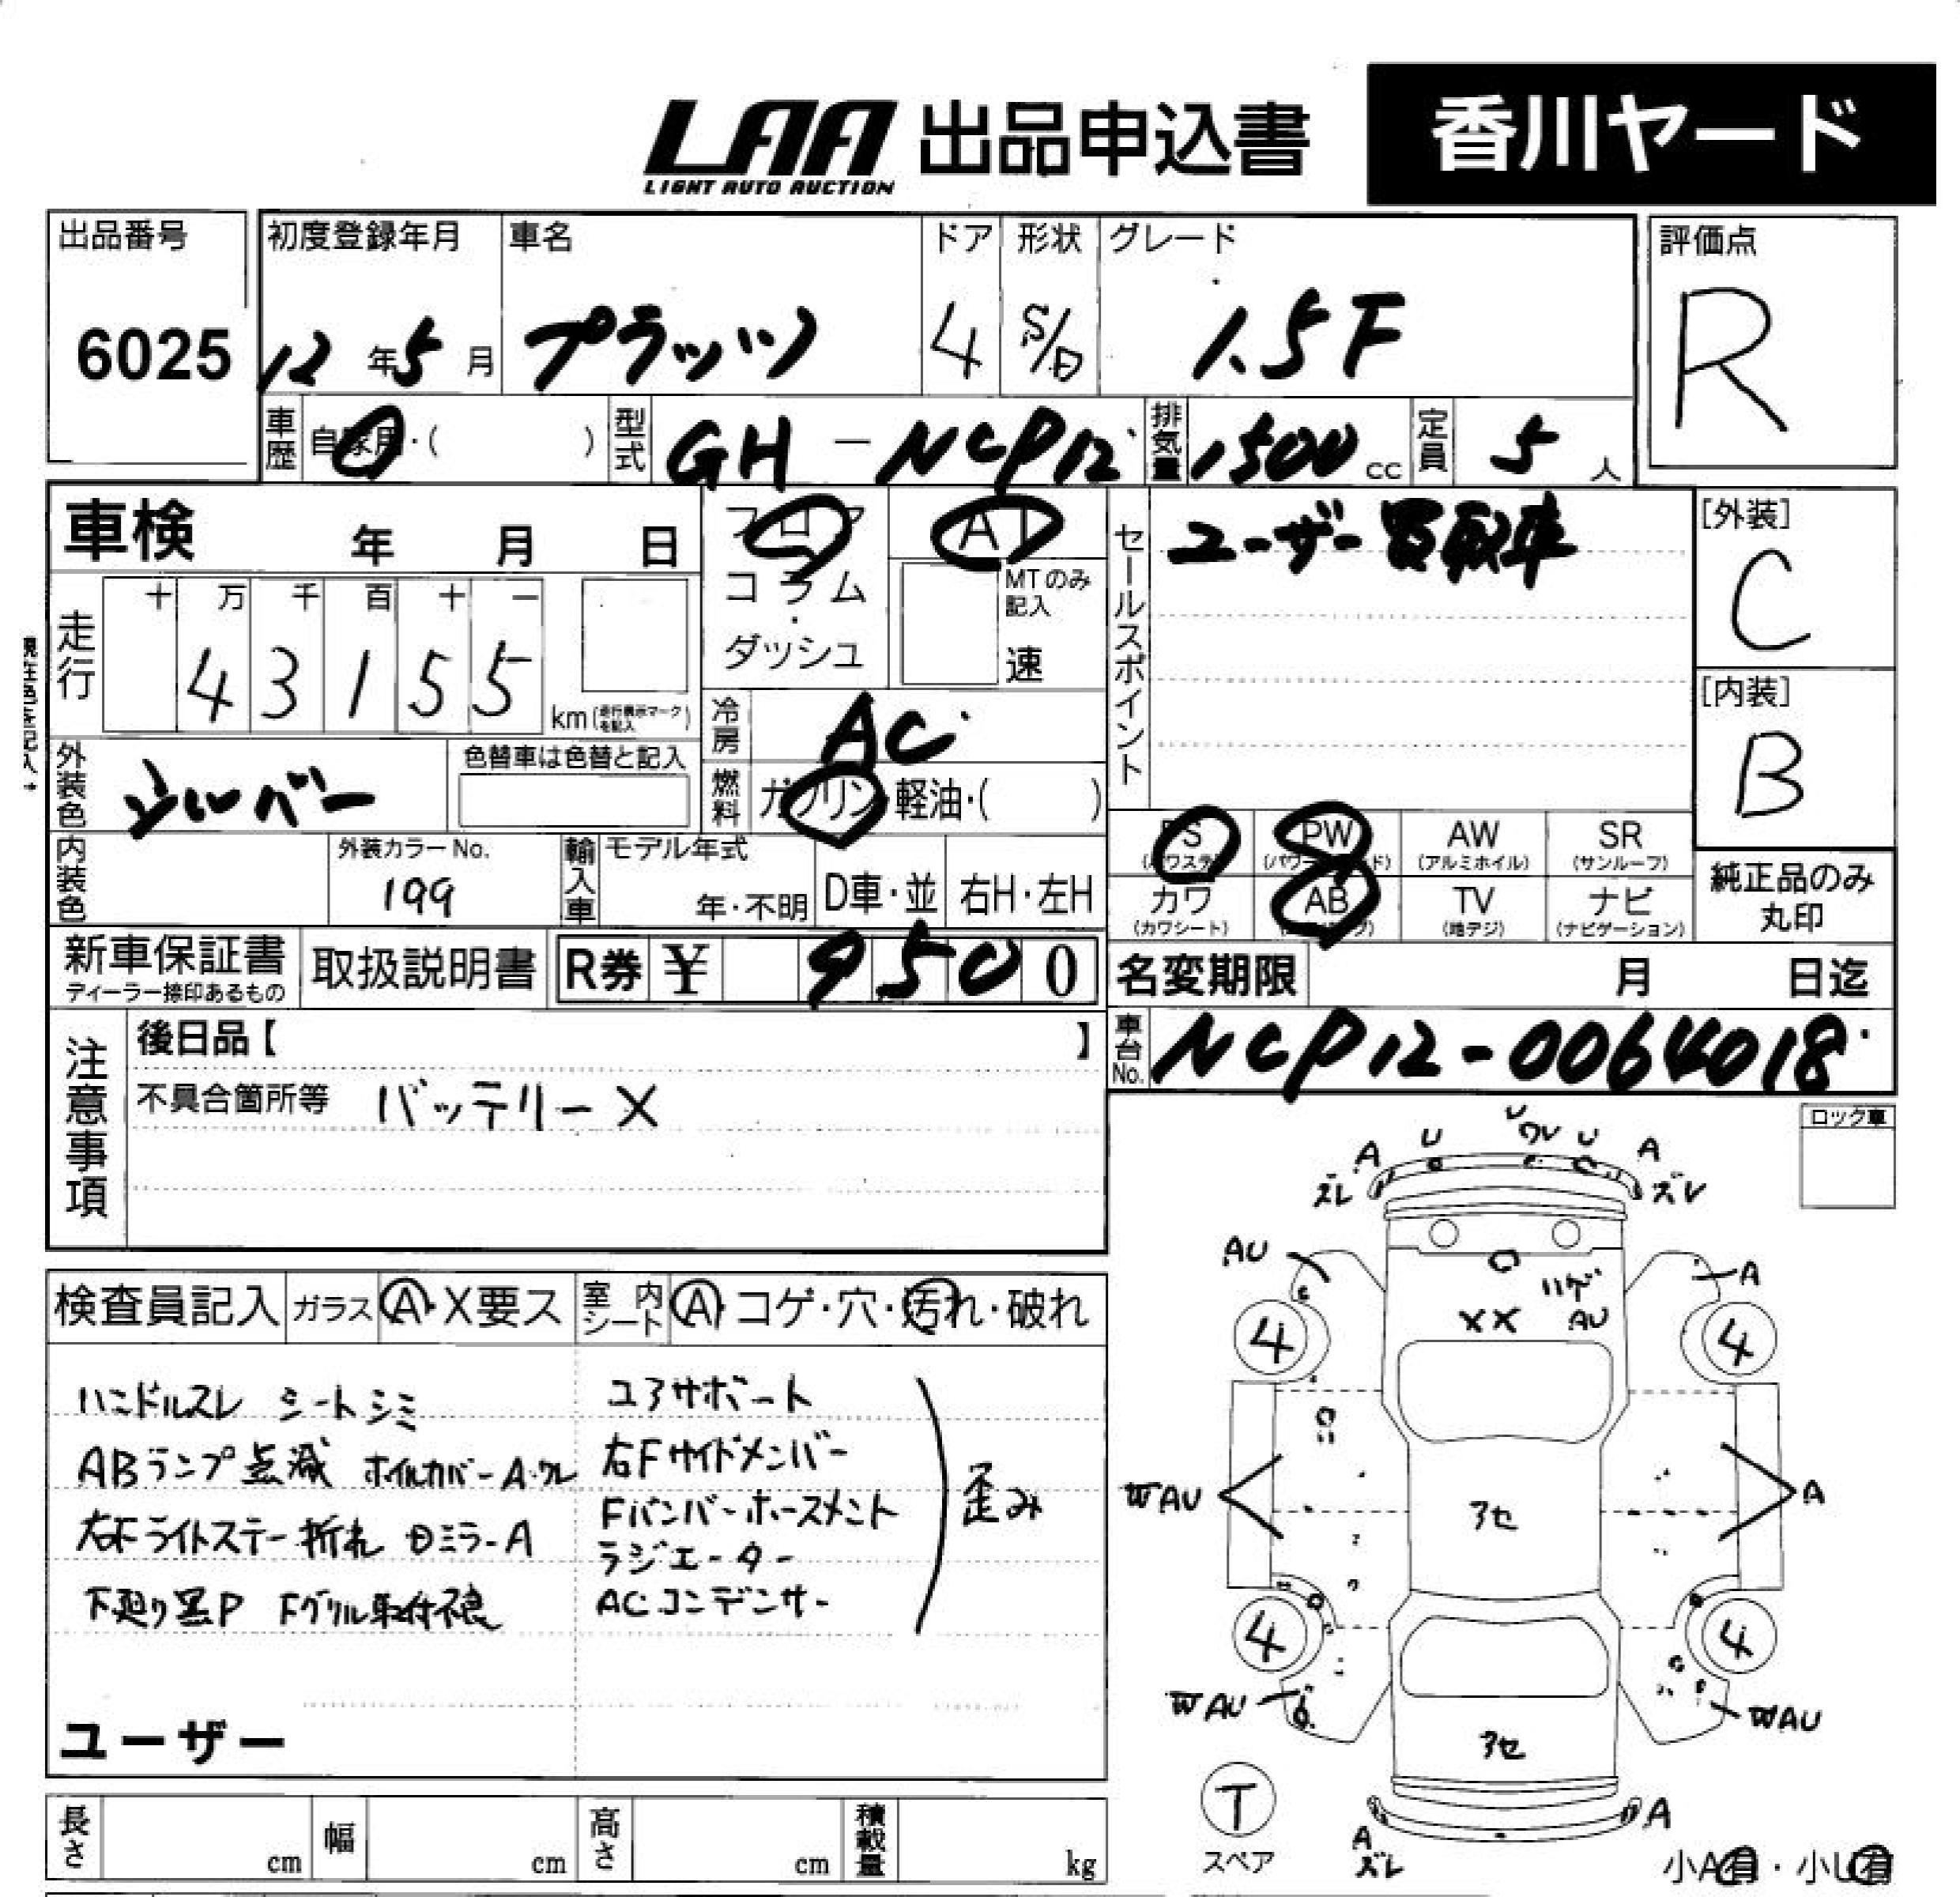 LAA 出品申込書 香川ヤード
LIGHT AUTO AUCTION
出品番号 初度登録年月 車名 ドア 形状 グレード 評価点
6025 12年5月 プラッツ 4 S/D 1.5F R
車歴 自家用・( ) 型式 GH-NCP12 排気量 1500cc 定員 5人
車検 年 月 日
フロア AT
コラム・ MTのみ記入
ダッシュ 速
セールスポイント ユーザー買取車
[外装] C
[内装] B
走行 十 万 千 百 十 一
43155 km(走行表示マークを記入)
冷房 AC
外装色 シルバー 色替車は色替と記入
燃料 ガソリン・軽油・( )
PS PW AW SR
(パワステ) (パワーウインド) (アルミホイル) (サンルーフ)
カワ AB TV ナビ
(カワシート) (エアバック) (地デジ) (ナビゲーション)
純正品のみ
丸印
内装色 外装カラーNo. 199 輸入車 モデル年式 年・不明 D車・並 右H・左H
新車保証書 取扱説明書 R券 ¥ 9500
ディーラー捺印あるもの
名変期限 月 日迄
車台No. NCP12-0064018
注意事項
後日品【 】
不具合箇所等 バッテリーX
ロック車
検査員記入 ガラス A・X要ス 室内シート A コゲ・穴・汚れ・破れ
ハンドルスレ シートシミ
ABランプ点滅 ホイルカバーA・ワレ
右Fライトステー折れ Dミラ-A
下廻り黒P Fグリル取付不良
コアサポート
右Fサイドメンバー
Fバンパーホースメント
ラジエーター
ACコンデンサー
歪み
ユーザー
U
U ワレ U
A A
ズレ ズレ
AU A
ハゲ
XX AU
4 4
WAU A
アセ
4 4
WAU WAU
アセ
T
スペア
A
A
ズレ
小A有・小U有
長さ cm 幅 cm 高さ cm 積載量 kg